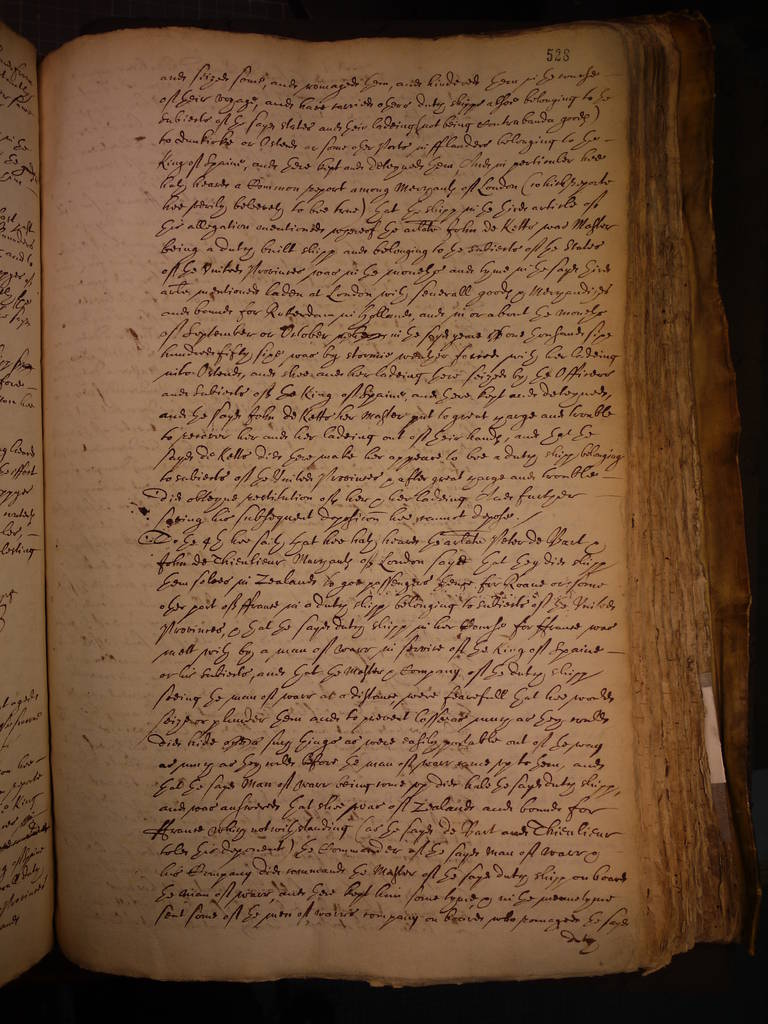 528
and seized some, and romaged them, and hindered them in the course
of their voyage, and have carried others dutch shipps alsoe belonging to the
subiects of the sayd States and their ladeing (not being Contrabanda goods)
to dunkirke or Ostend or some other Ports in fflanders belonging to the
King of Spaine, and there kept and deteyned them, And in perticuler hee
hath heard a Common report among Merchants of London (which reporte
hee verily beleeveth to bee true) that the shipp in the third article of
this allegation mentioned whereof the arlate John de Kette was Master
being a dutch built shipp and belonging to the subiects of the States
of the United Provinces was in the moneths and tyme in the sayd third
arlate mentioned laden at London with severall goods & Merchandizes
and bound for Rotterdam in holland, and in or about the moneths
of September or October in the sayd yeare one thousand sixe
hundred fifty sixe was by stormie weather forced with her ladeing
into Ostend, and shee and her ladeing there seized by the Officers
and subiects of the King of Spaine, and there kept and deteyned,
and the sayd John de Kette her Master put to great charge and trouble
to recover her and her ladeing out of their hands, and that the
sayd de Kette did there make her appeare to bee a dutch shipp belonging
to subiects of the United Provinces & after great charge and trouble
did obteyne restitution of her & her ladeing And further
saving his subsequent deposition hee cannot depose./
To the 4th hee saith that hee hath heard the arlate Peter de Bart &
John de Thieulieur Merchants of London saye that they did shipp
them selves in Zealand to goe passengers thence for Roane or some
other port of ffrance in a dutch shipp belonging to subiects of the United
Provinces, & that the sayd dutch shipp in her Course for ffrance was
mett with by a man of warr in service of the King of Spaine
or his subiects, and that the Master & Company of the dutch shipp
seeing the man of warr at a distance were fearefull that hee would
seize or plunder them and to prevent losse as much as they could
did hide such things as were easily portable out of the way
as much as they could before the man of warr came up to them, and
that the sayd Man of warr being come up did hale the sayd dutch shipp,
and was answered that shee was of Zealand and bound for
ffrance which notwithstanding (as the sayd de Bart and Thieulieur
told this deponent) the Commander of the sayd man of warr &
his Company did command the Master of the sayd dutch shipp on board
the man of warr, and there kept him some tyme, & in the meanetyme
sent some of the men of warrs company on board who romaged the sayd
dutch